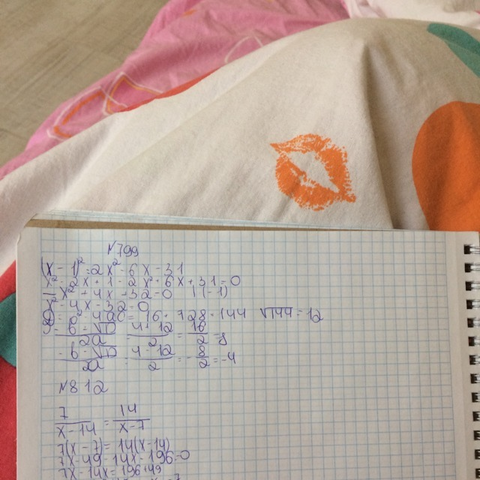 №799
(x-1)²=2x²-6x-31
x²-2x+1-2x²+6x+31=0
-x²+4x+32=0 |(-1)
x²-4x-32=0
D=b²-4ac=16+128=144 √144=12
-b+√D/2a = 4+12/2 = 16/2 = 8
-b-√D/2a = 4-12/2 = -8/2 = -4
№812
7/x-14 = 14/x-7
7(x-7)=14(x-14)
7x-49-14x+196=0
7x-14x=196+49